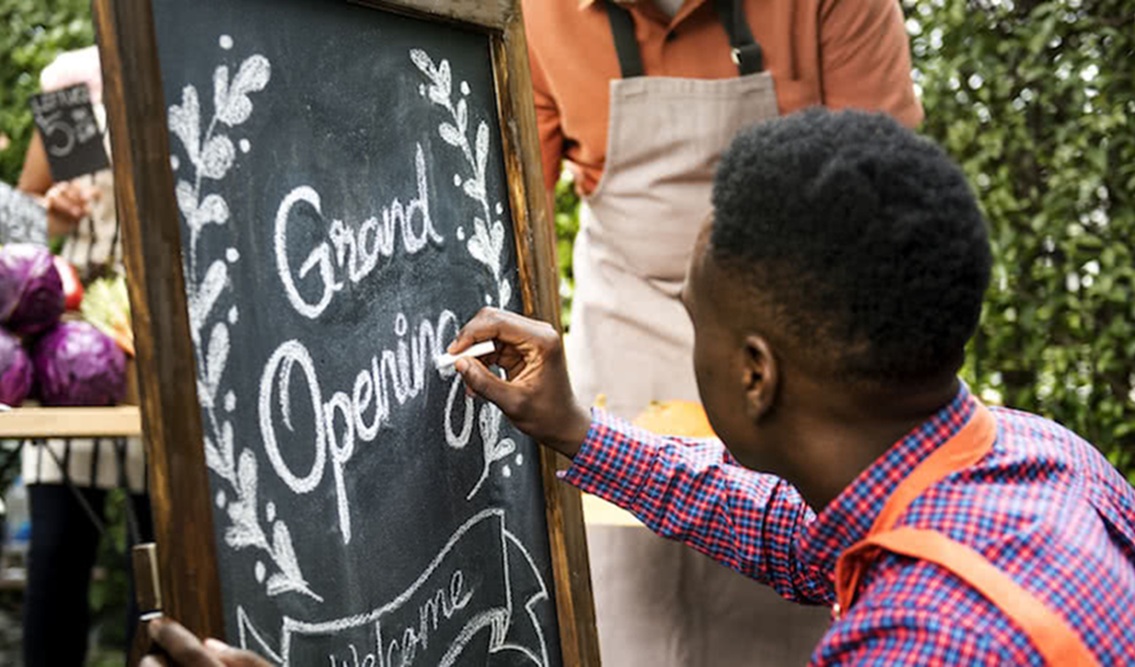 5
Grand
Opening
Welcome